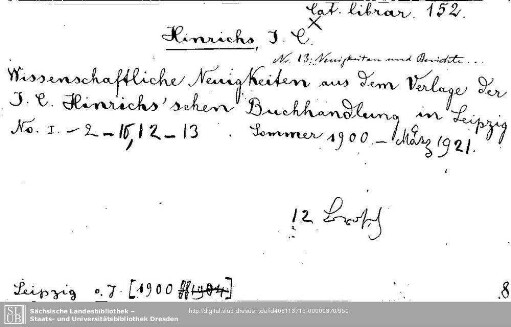 Cat. librar. 152.
Hinrichs, J. C.
No. 13: Neuigkeiten und Berichte...
Wissenschaftliche Neuigkeiten aus dem Verlage der
J. C. Hinrichs'schen Buchhandlung in Leipzig
No. 1. - 2 - 10, 12 - 13. Sommer 1900. - März 1921.
12 Brosch
Leipzig o. J. [1900 ff 1904] 8
Sächsische Landesbibliothek –
Staats- und Universitätsbibliothek Dresden